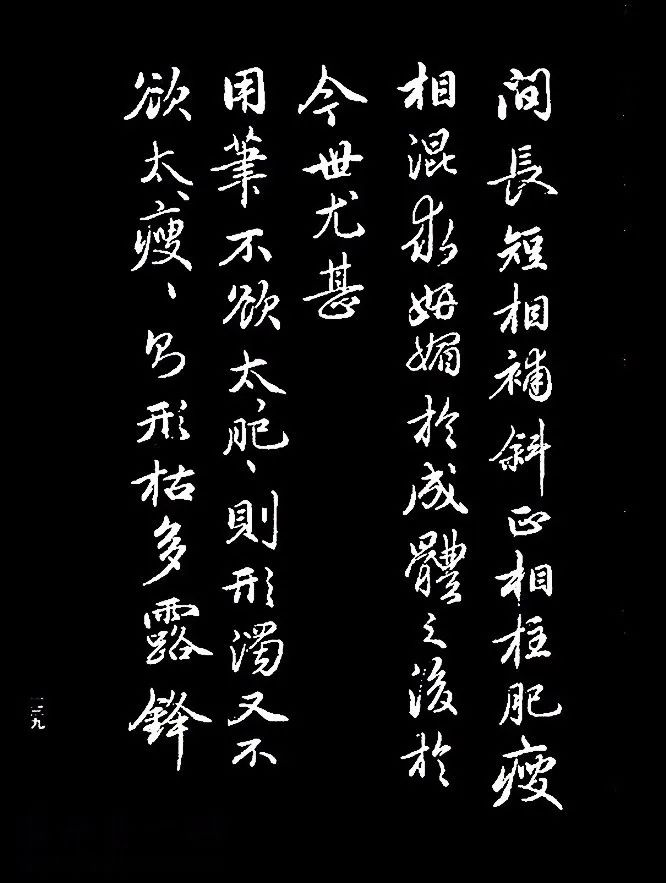 間長短相補斜正相柱肥瘦
相混求妍媚於成體之後於
今世尤甚
用筆不欲太肥、則形濁又不
欲太瘦、即形枯多露鋒
一三九